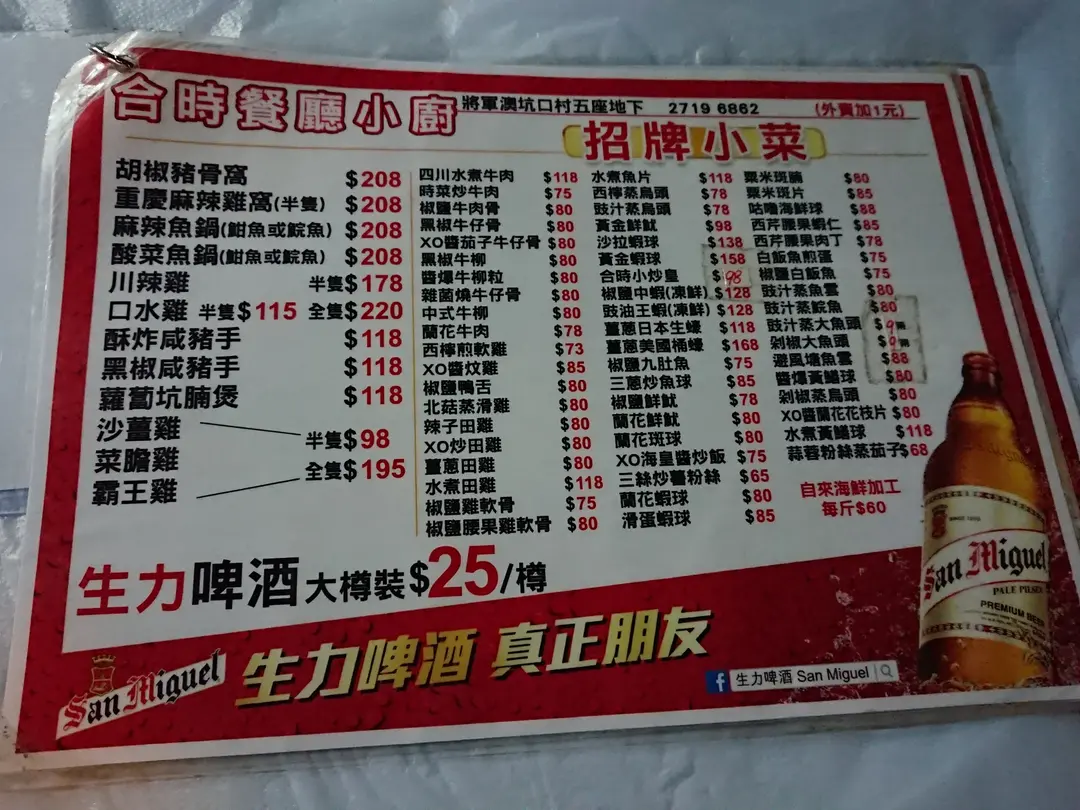 合時餐廳小廚
將軍澳坑口村五座地下 2719 6862 (外賣加1元)
招牌小菜
胡椒豬骨窩 $208
重慶麻辣雞窩(半隻) $208
麻辣魚鍋(鉗魚或鯇魚) $208
酸菜魚鍋(鉗魚或鯇魚) $208
川辣雞 半隻$178
口水雞 半隻$115 全隻$220
酥炸咸豬手 $118
黑椒咸豬手 $118
蘿蔔坑腩煲 $118
沙薑雞
菜膽雞
霸王雞
半隻$98
全隻$195
四川水煮牛肉 $118
時菜炒牛肉 $75
椒鹽牛肉骨 $80
黑椒牛仔骨 $80
XO醬茄子牛仔骨 $80
黑椒牛柳 $80
醬爆牛柳粒 $80
雜菌燒牛仔骨 $80
中式牛柳 $80
蘭花牛肉 $78
西檸煎軟雞 $73
XO醬炆雞 $85
椒鹽鴨舌 $80
北菇蒸滑雞 $80
辣子田雞 $80
XO炒田雞 $80
薑蔥田雞 $80
水煮田雞 $118
椒鹽雞軟骨 $75
椒鹽腰果雞軟骨 $80
水煮魚片 $118
西檸蒸烏頭 $78
豉汁蒸烏頭 $78
黃金鮮魷 $98
沙拉蝦球 $138
黃金蝦球 $158
合時小炒皇 $98
椒鹽中蝦(凍鮮) $128
豉油王蝦(凍鮮) $128
薑蔥日本生蠔 $118
薑蔥美國桶蠔 $168
椒鹽九肚魚 $75
三蔥炒魚球 $85
椒鹽鮮魷 $78
蘭花鮮魷 $80
蘭花斑球 $80
XO海皇醬炒飯 $75
三絲炒薯粉絲 $65
蘭花蝦球 $80
滑蛋蝦球 $85
粟米斑腩 $80
粟米斑片 $85
咕嚕海鮮球 $88
西芹腰果蝦仁 $85
西芹腰果肉丁 $78
白飯魚煎蛋 $75
椒鹽白飯魚 $75
豉汁蒸魚雲 $80
豉汁蒸鯇魚 $80
豉汁蒸大魚頭
剁椒大魚頭
避風塘魚雲 $88
醬爆黃鱔球 $80
剁椒蒸烏頭 $80
XO醬蘭花花枝片 $80
水煮黃鱔球 $118
蒜蓉粉絲蒸茄子 $68
自來海鮮加工
每斤$60
生力啤酒 大樽裝 $25/樽
San Miguel 生力啤酒 真正朋友
生力啤酒 San Miguel
San Miguel
PALE PILSEN
PREMIUM BEER